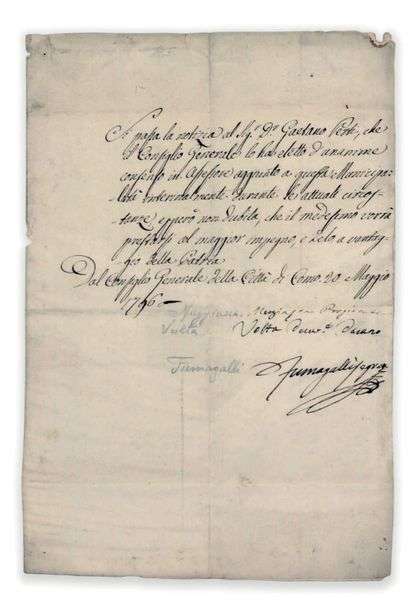 Si passa la notizia al Sigr. Dn. Gaetano Perti, che
il Consiglio Generale lo ha eletto d'unanime
consenso in Assessore aggiunto a questa Municipa-
lità interinalmente durante le attuali circos-
tanze epperò non dubita, che il medesimo vorrà
prestarsi al maggior impegno, e zelo a vantag-
gio della Patria
Dal Consiglio Generale della Città di Como 20 Maggio
1796 —
Volta
Volta Decurione
Fumagalli
Fumagalli Segro.